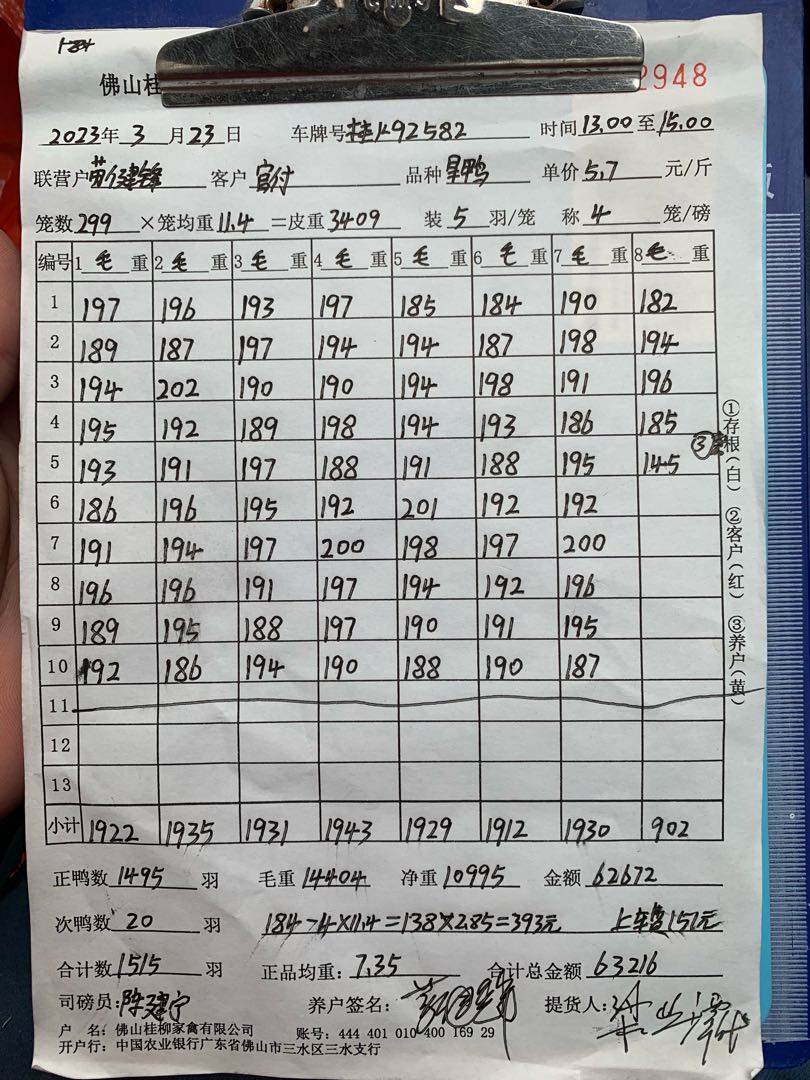 佛山桂
2948
2023年 3 月 23 日 车牌号 桂K92582 时间 13.00 至 15.00
联营户 建锋 客户 官付 品种 旱鸭 单价 5.7 元/斤
笼数 299 ×笼均重 11.4 =皮重 3409 装 5 羽/笼 称 4 笼/磅
编号 1 毛 重 2 毛 重 3 毛 重 4 毛 重 5 毛 重 6 毛 重 7 毛 重 8 毛 重
1 197 196 193 197 185 184 190 182
2 189 187 197 194 194 187 198 194
3 194 202 190 190 194 198 191 196
4 195 192 189 198 194 193 186 185
5 193 191 197 188 191 188 195 145 ③
6 186 196 195 192 201 192 192
7 191 194 197 200 198 197 200
8 196 196 191 197 194 192 196
9 189 195 188 197 190 191 195
10 192 186 194 190 188 190 187
11
12
13
小计 1922 1935 1931 1943 1929 1912 1930 902
①存根(白) ②客户(红) ③养户(黄)
正鸭数 1495 羽 毛重 14404 净重 10995 金额 62672
次鸭数 20 羽 184-4×11.4=138×2.85=393元 上车费151元
合计数 1515 羽 正品均重: 7.35 合计总金额 63216
司磅员: 陈建宁 养户签名: 提货人:
户 名: 佛山桂柳家禽有限公司 账号: 444 401 010 400 169 29
开户行: 中国农业银行广东省佛山市三水区三水支行